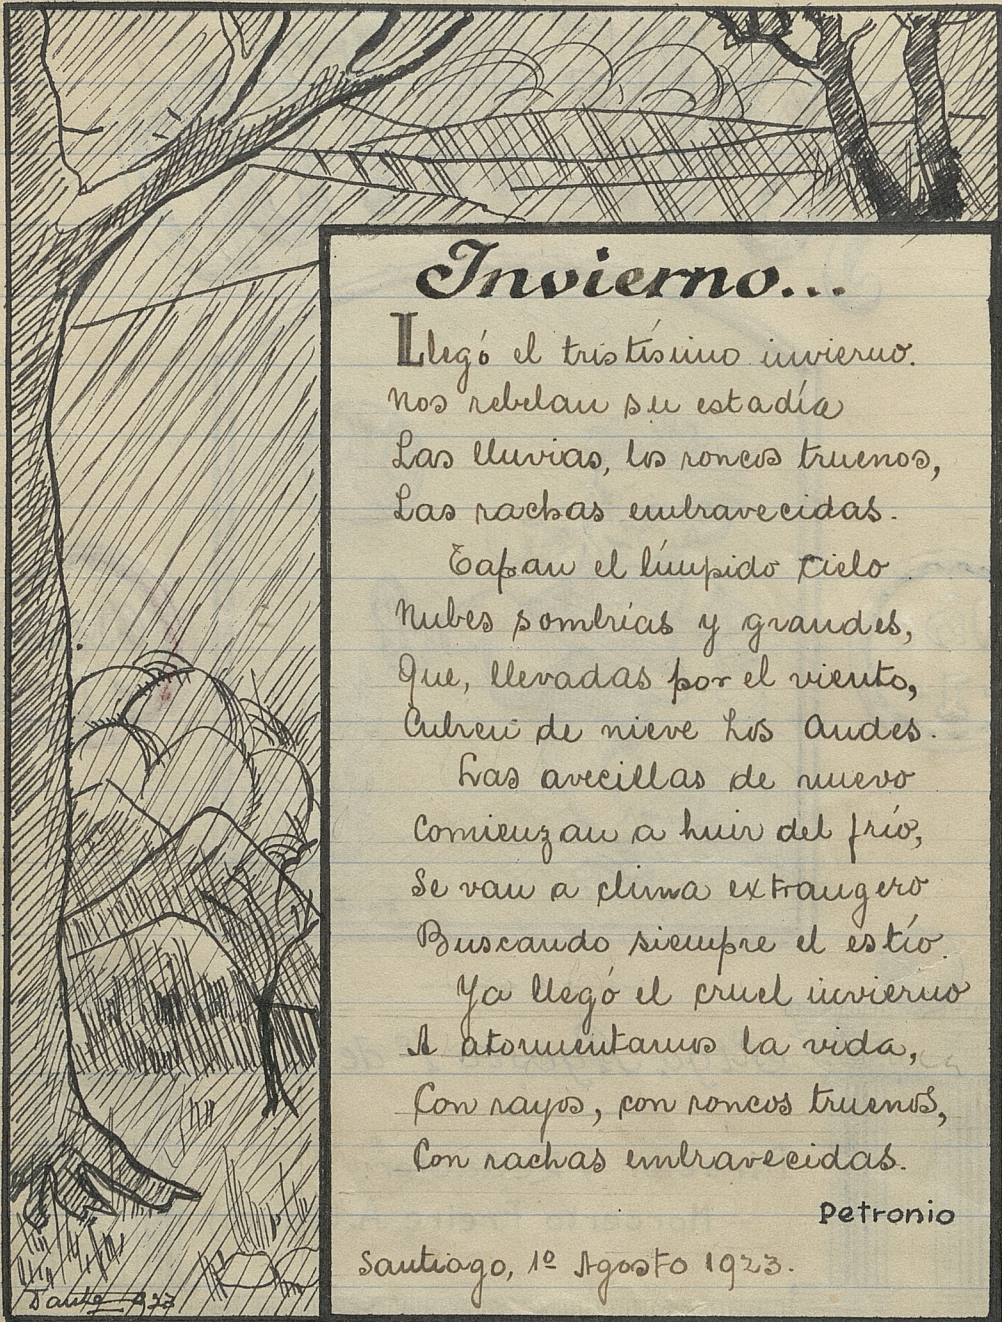 Invierno...
Llegó el tristísimo invierno.
Nos rebelan su estadía
Las lluvias, los roncos truenos,
Las rachas embravecidas.
Tapan el límpido cielo
Nubes sombrías y grandes,
Que, llevadas por el viento,
Cubren de nieve los Andes.
Las avecillas de nuevo
Comienzan a huir del frío,
Se van a clima extrangero
Buscando siempre el estío.
Ya llegó el cruel invierno
A atormentarnos la vida,
Con rayos, con roncos truenos,
Con rachas embravecidas.
Petronio
Santiago, 1º Agosto 1923.